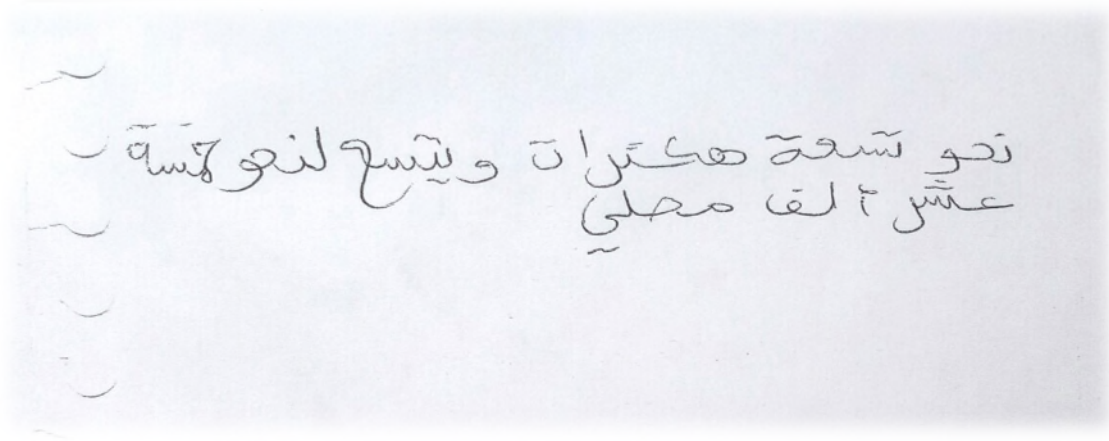 نحو تسعة هكتارات ويتسع لنحو خمسة
عشر ألف مصلي